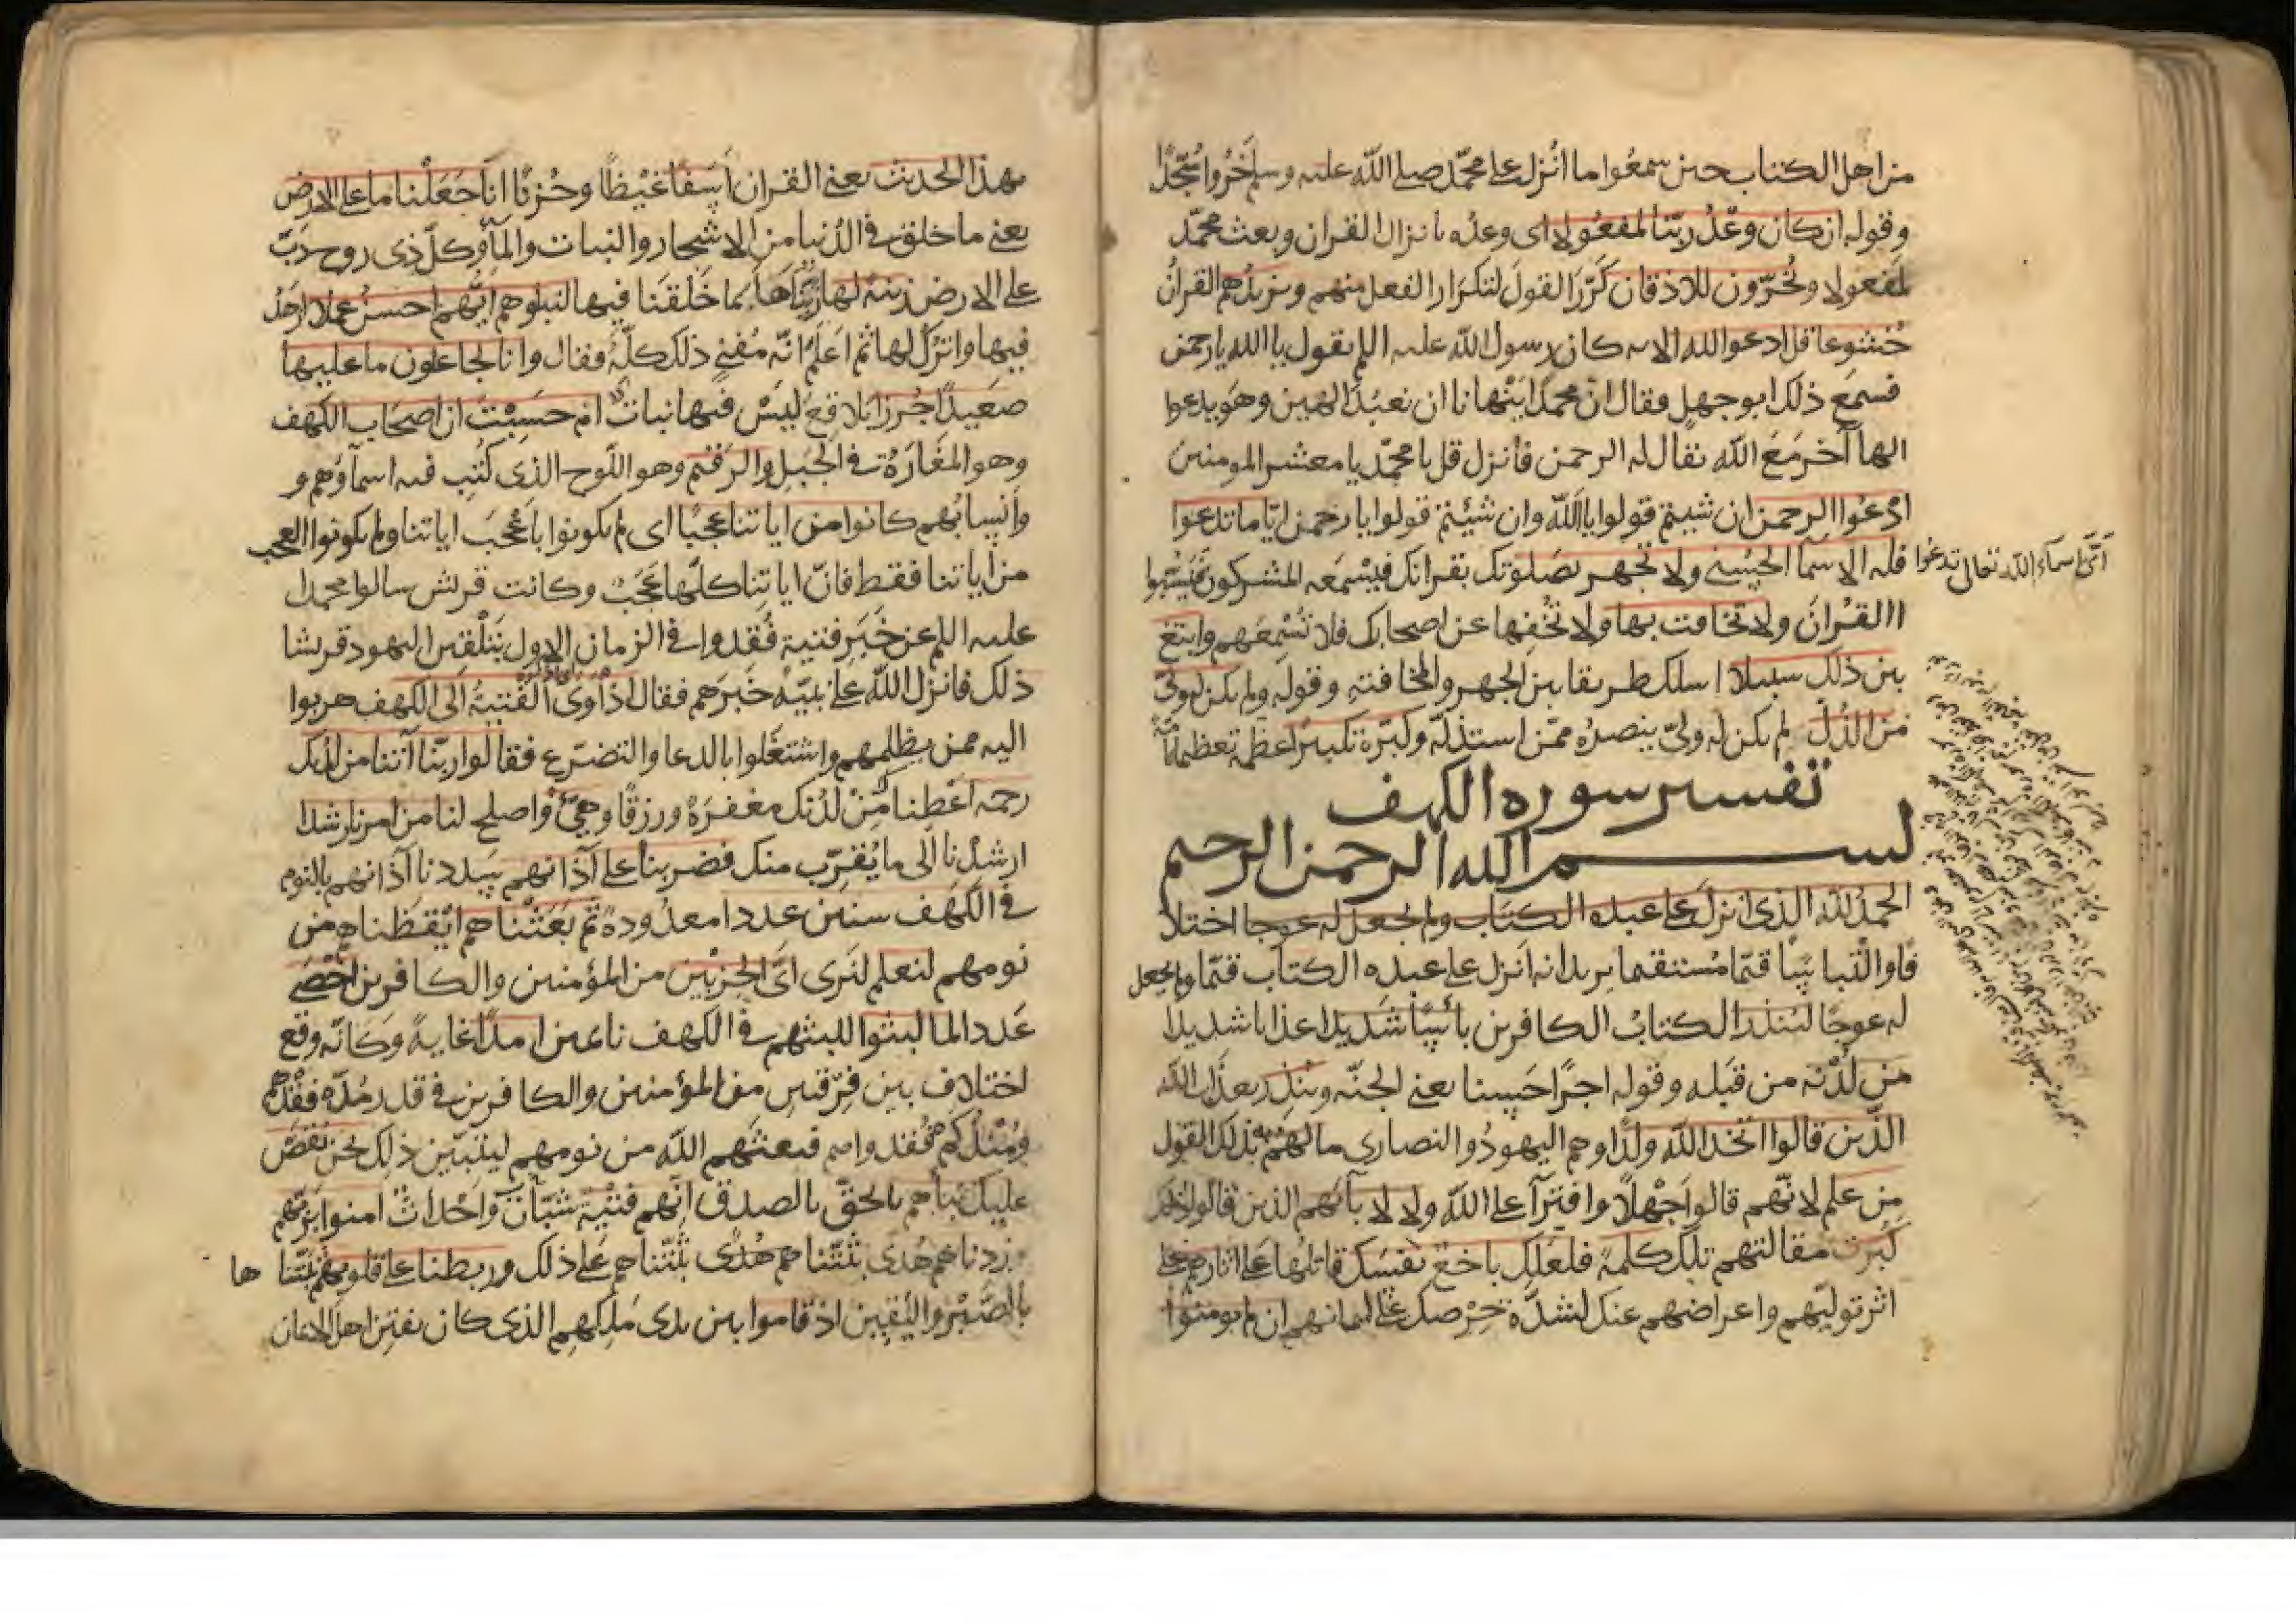 من اهل الكتاب حين سمعوا ما انزل على محمّد صلى الله عليه وسلم خروا سجّدًا
وقوله ان كان وعد ربّنا لمفعولا اى وعده بانزال القران وبعث محمّد
لمفعولا ويخرّون للاذقان كرّر القول لتكرار الفعل منهم ويزيدهم القرانُ
خشوعا قل ادعوا الله الايه كان رسول الله عليه اللم يقول يا الله يا رحمن
فسمع ذلك ابو جهل فقال انّ محمدا ينهانا ان نعبد الهين وهو يدعوا
الهاً آخر مع الله يقال له الرحمن فانزل قل يا محمّد يا معشر المومنين
ادعُوا الرحمن ان شيتم قولوا يا الله وان شئتم قولوا يا رحمن ايّا ما تدعوا
اىّ اسماء الله تعالى تدعوا
فله الاسماء الحسنى ولا تجهر بصلوتك بقرانك فيسمعه المشركون فيسبّوا
القرانَ ولا تخافت بها ولا تخفها عن اصحابك فلا تسمعهم وابتغ
بين ذلك سبيلا اسلك طريقا بين الجهر والمخافتةِ وقوله ولم يكن له ولىّ
من الذلّ لم يكن له ولىّ ينصره ممّن استذلّه وكبّره تكبيرًا عظّمه تعظيماً
تفسير سوره الكهف
بسم الله الرحمن الرحيم
الحمد لله الذى انزل على عبده الكتاب ولم يجعل له عوجا اختلا
فا والتباسًا قيّما مستقيما يريد انه انزل على عبده الكتاب قيّما ولم يجعل
له عوجًا لينذر الكتابُ الكافرين بأسًا شديدا عذابا شديدا
من لدُنْه من قبله وقوله اجرًا حسنا يعنى الجنّه وينذر بعذاب الله
الذين قالوا اتخذ الله ولدًا وهم اليهودُ والنصارى ما لهم به بذلك القول
من علم لانّهم قالوا جهلًا وافترآ على الله ولا لابآئهم الذين قالوا ذلك
كبرت مقالتهم تلك كلمة فلعلك باخع نفسك قاتلها على اثارهم على
اثر توليّهم واعراضهم عنك لشدّة حرصك على ايمانهم ان لم يومنوا
بهذا الحديث يعنى القران اسفًا غيظًا وحزنًا انا جعلنا ما على الارض
يعنى ما خلق فى الدنيا من الاشجار والنبات والمآ وكلّ ذى روح دبّ
على الارض زينة لها زيّنّاها بما خلقنا فيها لنبلوهم ايّهم احسن عملا ازهد
فيها واترك لها ثم اعلم انّه مُفنى ذلك كلّه فقال وانا لجاعلون ما عليها
صعيدًا جرزا بلاقع ليس فيها نبات ام حسبت ان اصحاب الكهف
وهو المغارة فى الجبل والرقيم وهو اللّوح الذى كُتب فيه اسمآوهم و
وانسابُهم كانوا من اياتنا عجبًا اى لم يكونوا باعجب اياتنا ولم يكونوا العجب
من اياتنا فقط فانّ اياتِنا كلّها عجبٌ وكانت قريش سالوا محمدا
عليه اللم عن خبر فتية فُقدوا فى الزمان الاول بتلقين اليهود قريشا
ذلك فانزل الله على نبيّه خبرهم فقال اذ اوى الفتية الى الكهف هربوا
اليه ممن يظلمهم واشتغلوا بالدعا والتضرّع فقالوا ربّنا آتنا من لدنك
رحمة اعطنا من لدنك مغفرة ورزقًا وهيّئ واصلح لنا من امرنا رشدا
ارشدنا الى ما يُقرّب منك فضربنا على آذانهم سددنا آذانهم بالنوم
فى الكهف سنين عددا معدودة ثم بعثناهم ايقظناهم من
نومهم لنعلم لنرى اىّ الحزبين من المؤمنين والكافرين احصى
عددا لما لبثوا للبثهم فى الكهف نائمين امدًا غايةً وكانّه وقع
اختلاف بين فرقتين من المؤمنين والكافرين فى قدر مدّة فقدهم
ومنذ كم فُقدوا فبعثهم الله من نومهم ليتبيّن ذلك نحن نقص
عليك نبأهم بالحقّ بالصدق انّهم فتية شبّان واحداث امنوا بربّهم
وزدناهم هدى ثبّتناهم على ذلك وربطنا على قلوبهم ثبّتنا ها
بالصّبر واليقين اذ قاموا بين يدى ملِكهم الذى كان يفتِن اهل الايمان